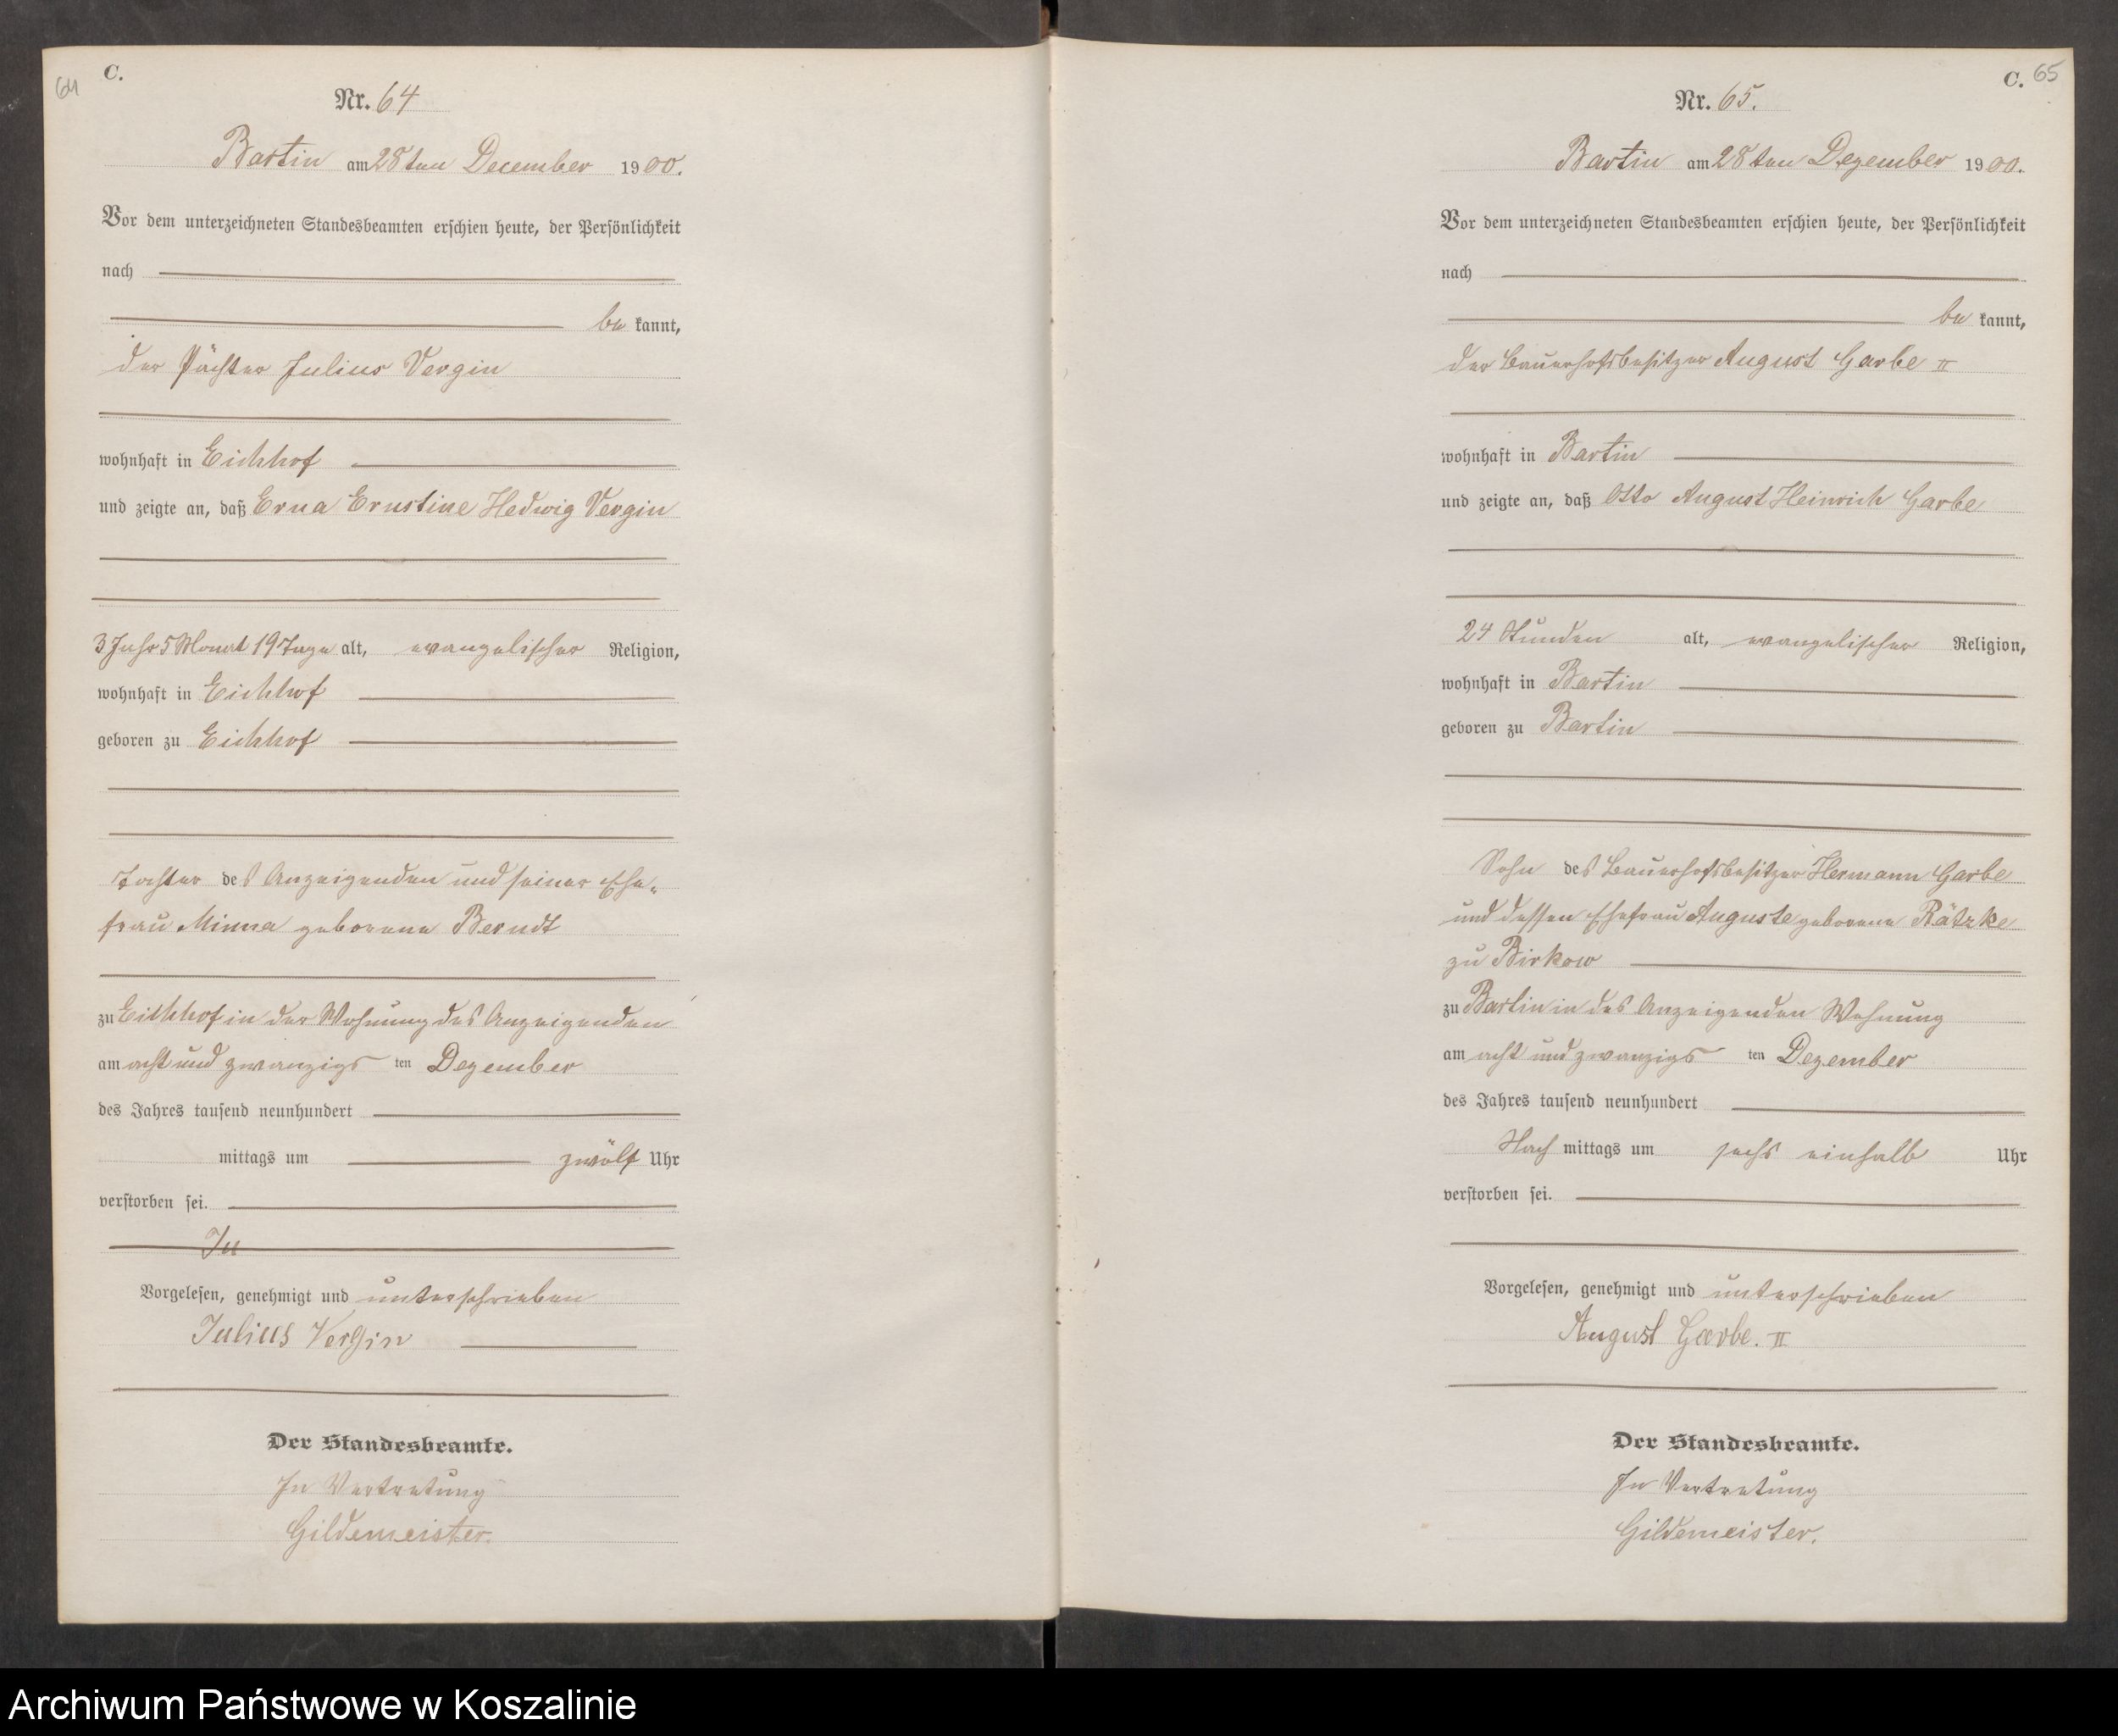 64
C.
Nr. 64
Bartin am 28ten December 1900.
Vor dem unterzeichneten Standesbeamten erschien heute, der Persönlichkeit
nach
be kannt,
der Pächter Julius Vergin
wohnhaft in Eichhof
und zeigte an, daß Erna Ernstine Hedwig Vergin
3 Jahr 5 Monat 19 Tage alt, evangelischer Religion,
wohnhaft in Eichhof
geboren zu Eichhof
Tochter des Anzeigenden und seiner Ehe-
frau Minna geborene Berndt
zu Eichhof in der Wohnung des Anzeigenden
am acht und zwanzigs ten Dezember
des Jahres tausend neunhundert
mittags um zwölf Uhr
verstorben sei.
In
Vorgelesen, genehmigt und unterschrieben
Julius Vergin
Der Standesbeamte.
In Vertretung
Gildemeister.
C. 65
Nr. 65.
Bartin am 28ten Dezember 1900.
Vor dem unterzeichneten Standesbeamten erschien heute, der Persönlichkeit
nach
be kannt,
der Bauerhofsbesitzer August Garbe II
wohnhaft in Bartin
und zeigte an, daß Otto August Heinrich Garbe
24 Stunden alt, evangelischer Religion,
wohnhaft in Bartin
geboren zu Bartin
Sohn des Bauerhofsbesitzer Hermann Garbe
und dessen Ehefrau Auguste geborene Rätzke
zu Birkow
zu Bartin in des Anzeigenden Wohnung
am acht und zwanzigs ten Dezember
des Jahres tausend neunhundert
Nach mittags um sechs einhalb Uhr
verstorben sei.
Vorgelesen, genehmigt und unterschrieben
August Garbe. II
Der Standesbeamte.
In Vertretung
Gildemeister.
Archiwum Państwowe w Koszalinie